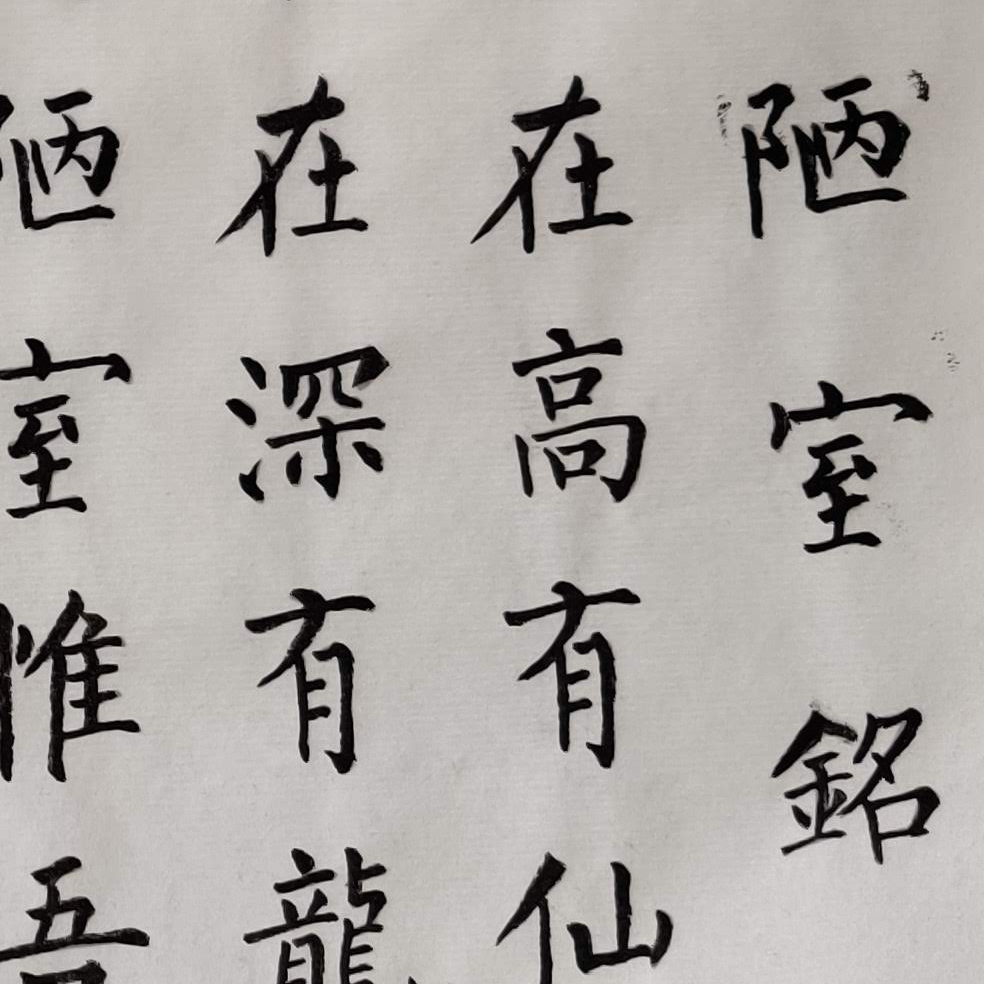 陋室銘
在高有仙
在深有龍
陋室惟吾